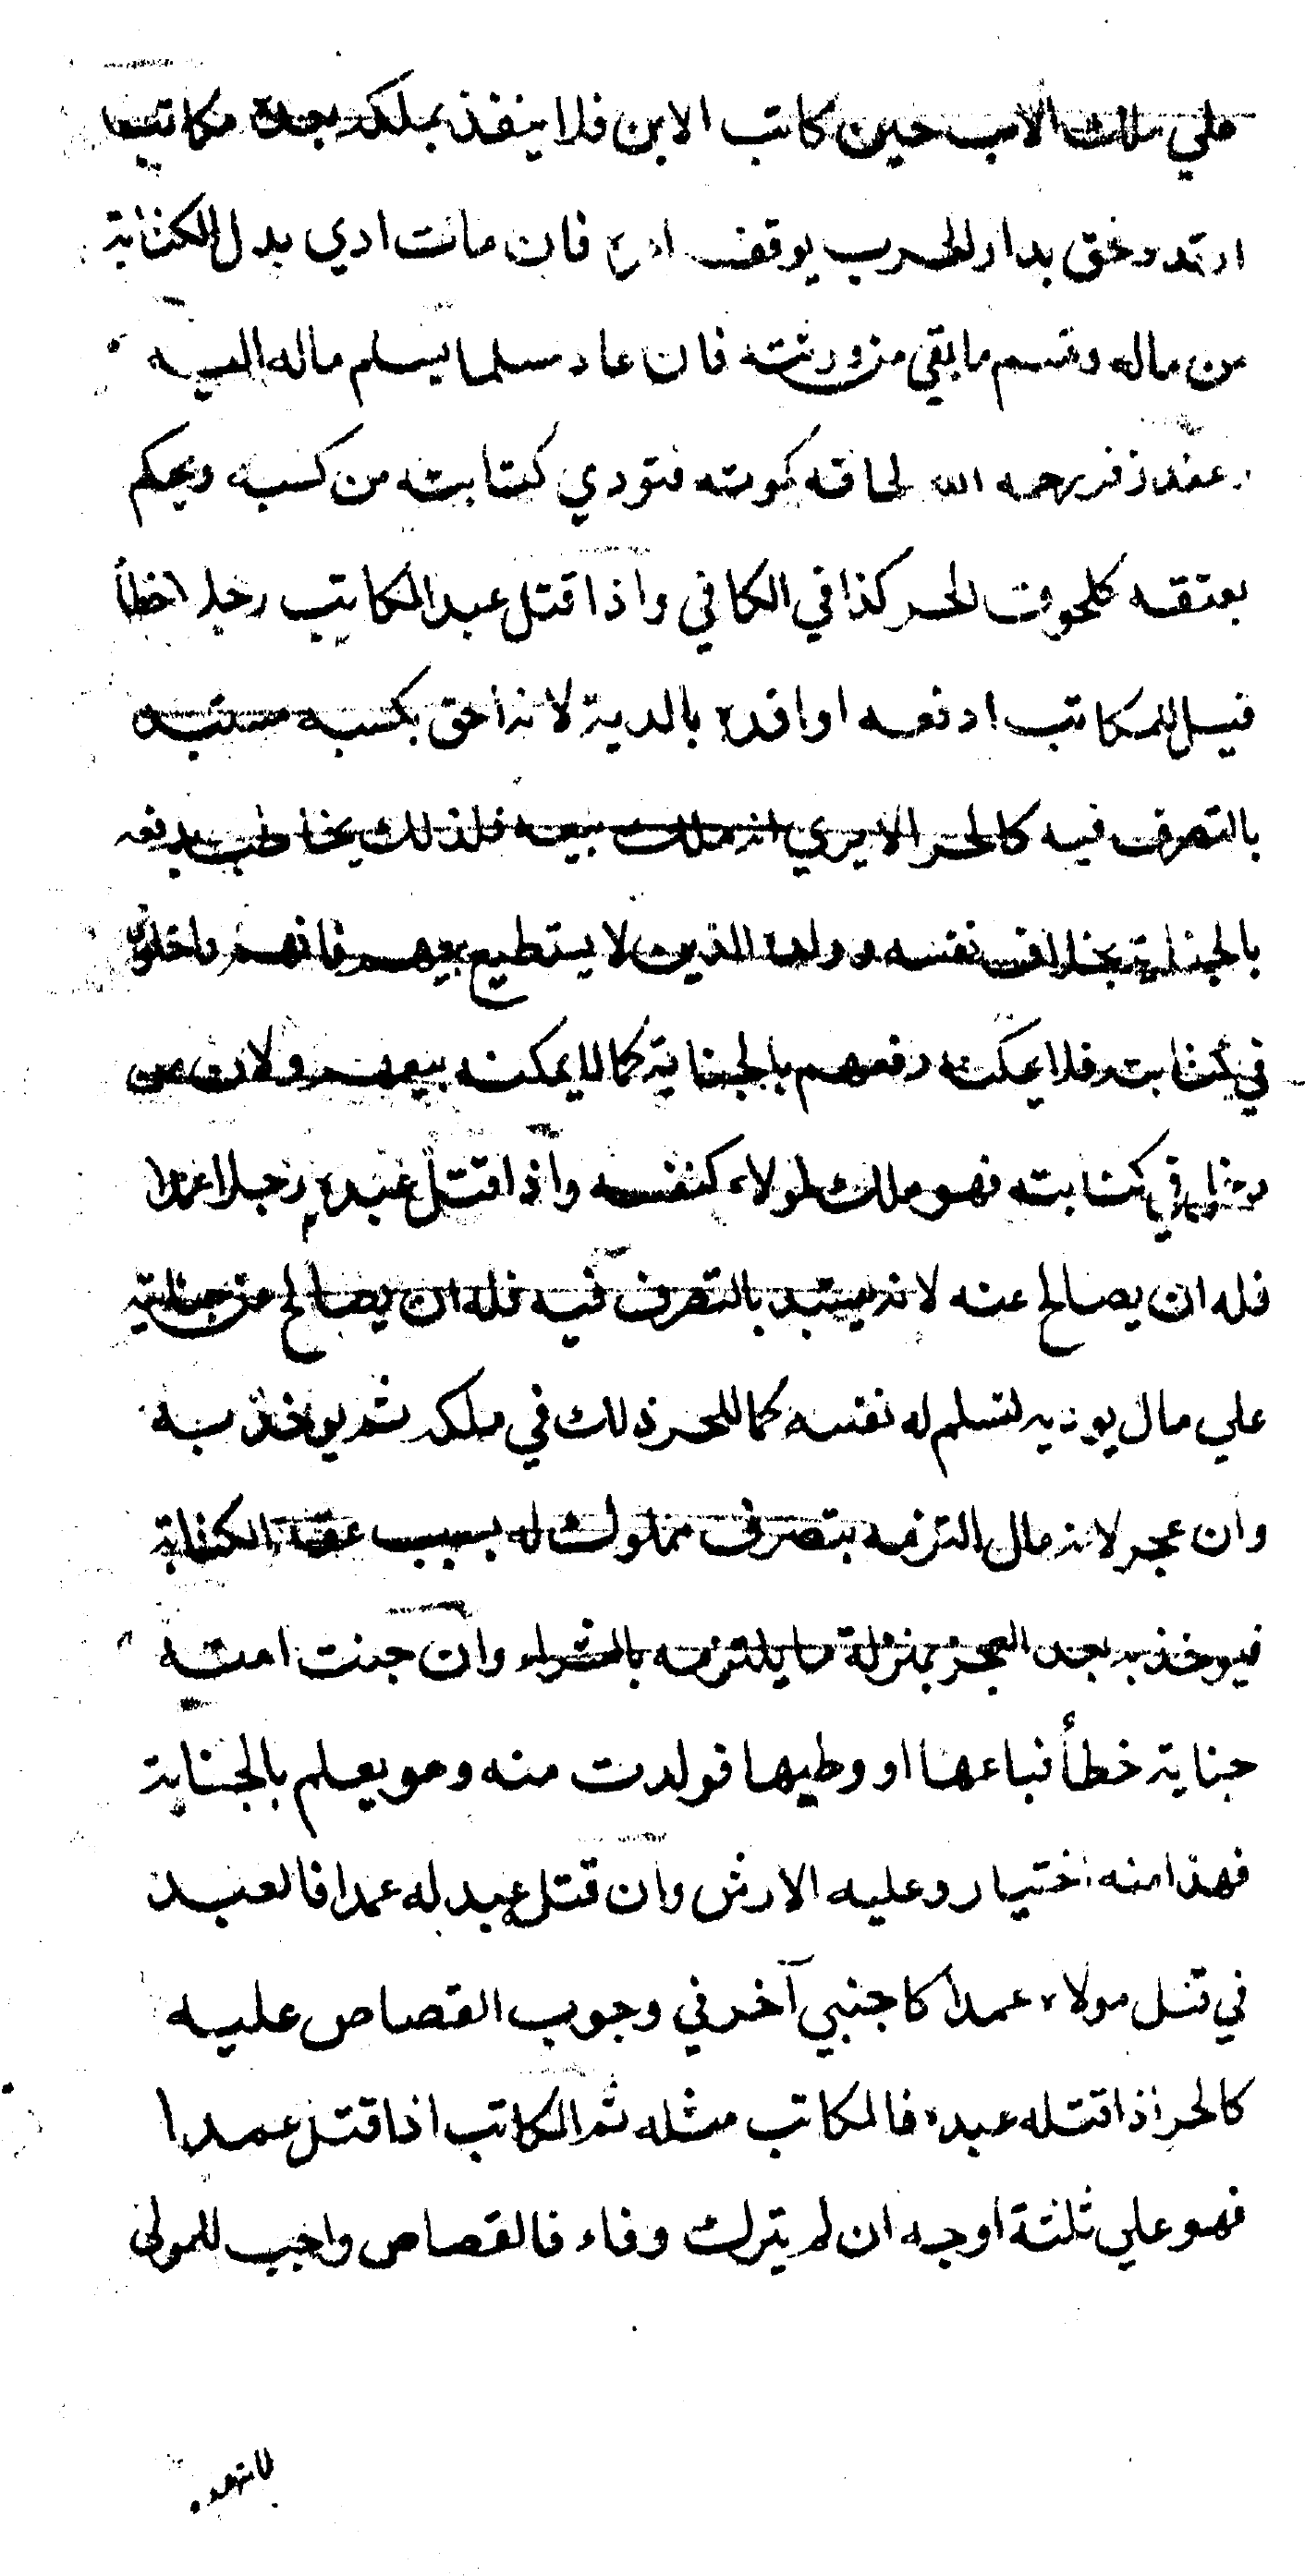 علي ملك الاب حين كاتب الابن فلا ينفذ بملكه بعده مكاتب
ارتد ولحق بدار الحرب يوقف امره فان مات ادي بدل الكتابة
من ماله وقسم ما بقي من ورثته فان عاد مسلما يسلم ماله اليه
وعند زفر رحمه الله لحاقه كموته فتودي كتابته من كسبه ويحكم
بعتقه كلحوق الحر كذا في الكافي واذا قتل عبد المكاتب رجلا خطأ
قيل للمكاتب ادفعه او افده بالدية لانه احق بكسبه مستبد
بالتصرف فيه كالحر الا يري انه ملك بيعه فلذلك يخاطب بدفعه
بالجناية بخلاف نفسه وولده الذين لا يستطيع بيعهم فانهم داخلون
في كتابته فلا يمكنه دفعهم بالجناية كما لا يمكنه بيعهم ولان من
في كتابته فهو ملك لمولاه كنفسه واذا قتل عبده رجلا عمدا
فله ان يصالح عنه لانه يستبد بالتصرف فيه فله ان يصالح عن جنايته
علي مال يوديه لتسلم له نفسه كما للحر ذلك في ملكه ثم يوخذ به
وان عجر لانه مال التزمه بتصرف مملوك له بسبب عقد الكتابة
فيوخذ به بعد العجز بمنزلة ما يلتزمه بالشراء وان جنت امته
جناية خطأ فباعها او وطيها فولدت منه وهو يعلم بالجناية
فهذا منه اختيار وعليه الارش وان قتل عبد له عمدا فالعبد
في قتل مولاه عمدا كاجنبي آخر في وجوب القصاص عليه
كالحر اذا قتله عبده فالمكاتب مثله ثم المكاتب اذا قتل عمدا
فهو علي ثلثة اوجه ان لم يترك وفاء فالقصاص واجب للمولي